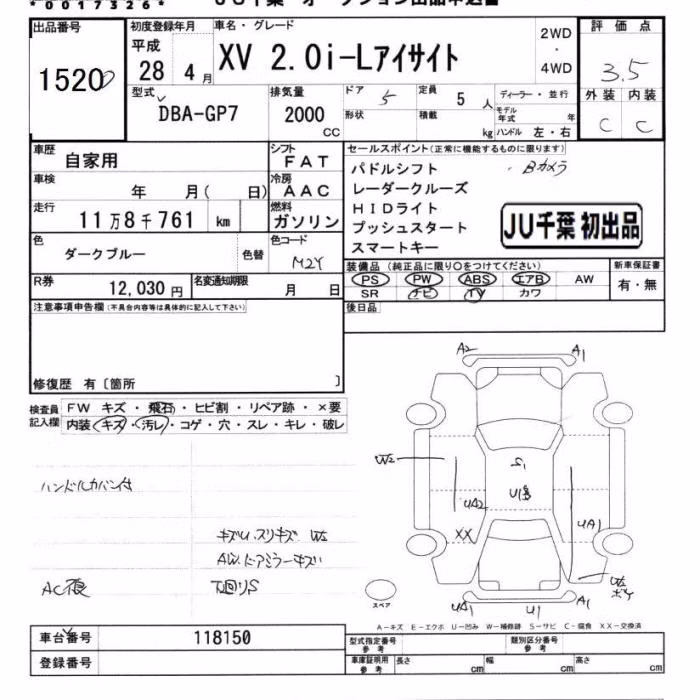 *0017326*
JU千葉 オークション出品申込書
出品番号
1520
初度登録年月
平成
28 4月
車名・グレード
XV 2.0i-Lアイサイト
2WD
・
4WD
評価点
3.5
外装 内装
C C
型式
DBA-GP7
排気量
2000
CC
ドア 5
定員 5 人
形状
積載 kg
ディーラー・並行
モデル年式 年
ハンドル 左・右
車歴 自家用
シフト FAT
車検 年 月( 日)
冷房 AAC
走行 11万8千761 km
燃料 ガソリン
色 ダークブルー 色替
色コード M2Y
R券 12,030 円
名変通知期限 月 日
セールスポイント(正常に機能するものに限ります)
パドルシフト ・Bカメラ
レーダークルーズ
HIDライト
プッシュスタート
スマートキー
JU千葉 初出品
装備品(純正品に限り〇をつけてください)
PS PW ABS エアB AW
SR ナビ TV カワ
新車保証書
有・無
後日品
注意事項申告欄(不具合内容等は具体的に記入して下さい)
修復歴 有〔箇所 〕
検査員記入欄
FW キズ・飛石・ヒビ割・リペア跡・×要
内装 キズ・汚レ・コゲ・穴・スレ・キレ・破レ
ハンドルカバー付
キズU.スリキズ W2
AW.ドアミラーキズ
AC不良 下回りS
A2 A1
W2
S1
UA2
UA1
XX
スペア
UA1 U1 A1
A-キズ E-エクボ U-凹み W-補修跡 S-サビ C-腐食 XX-交換済
車台番号 118150
登録番号
型式指定番号 参考
類別区分番号 参考
車庫証明用 参考
長さ cm 幅 cm 高さ cm